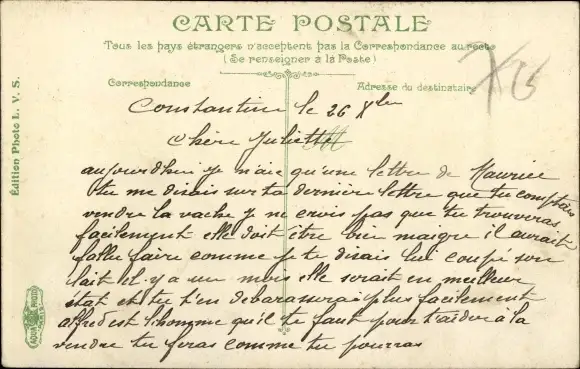 CARTE POSTALE
Tous les pays étrangers n'acceptent pas la Correspondance au recto
(Se renseigner à la Poste)
Correspondance
Adresse du destinataire
Édition Photo L. V. S.
Constantine le 26 Xbre
Chère Juliette
aujourdhui je n'aie qu'une lettre de Maurice
tu me disais sur ta dernière lettre que tu comptais
vendre la vache je ne crois pas que tu trouveras
facilement elle doit être bien maigre il aurait
fallu faire comme je te disais lui coupé son
lait il y a un mois elle serait en meilleur
état et tu t'en debarasserais plus facilement
alfred est l'homme qu'il te faut pour t'aider à la
vendre tu feras comme tu pourras